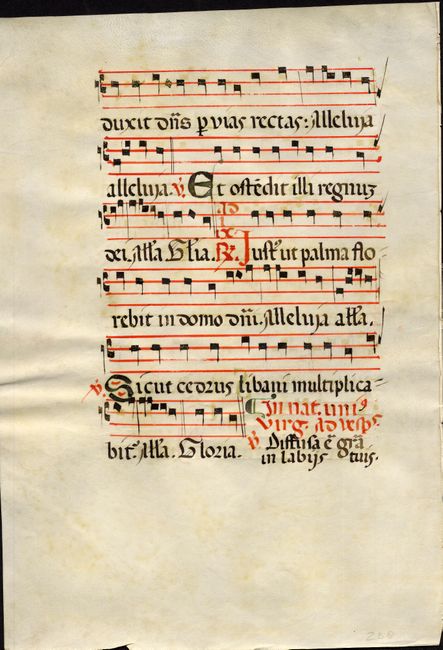 duxit dn̄s ꝑ vias rectas: Alleluia
alleluia. ℣. Et ostēdit illi regnuꝫ
dei. All'a. Gl'ia. ad ix ℟. Iust' ut palma flo
rebit in domo dn̄i. Alleluia all'a.
℣. Sicut cedrus libani multiplica-
bit. All'a. Gloria.
¶ In nat. uni⁹
virg. ad vesp.
℣ Diffusa ē gr̄a
in labijs tuis.